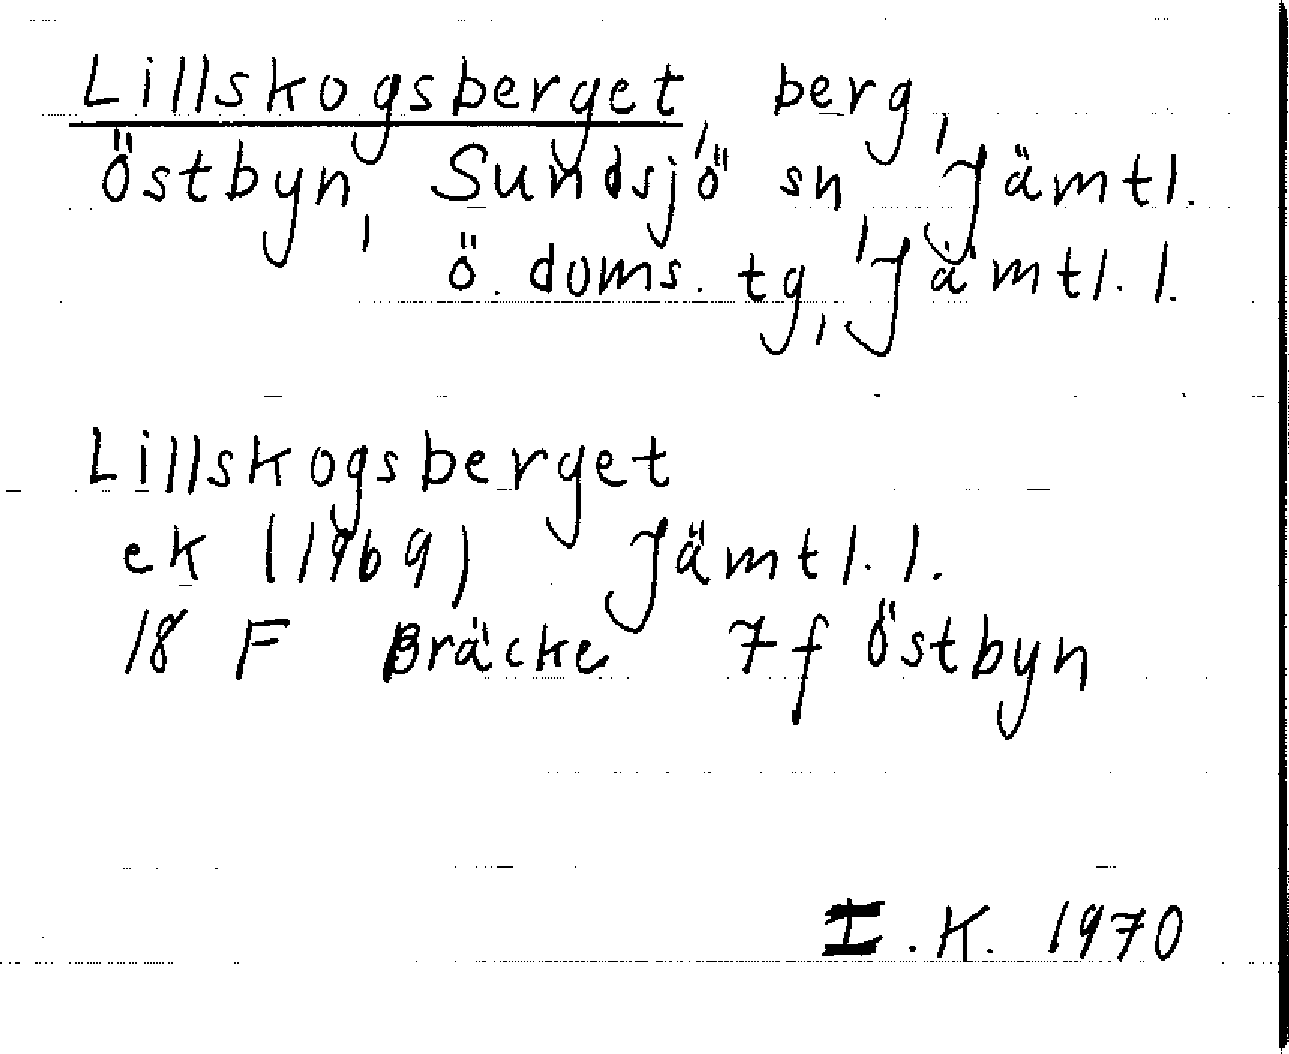 Lillskogsberget, berg,
Östbyn, Sundsjö sn, Jämtl.
ö. doms. tg, Jämtl. l.
Lillskogsberget
ek (1969) Jämtl. l.
18 F Bräcke 7f Östbyn
I.K. 1970